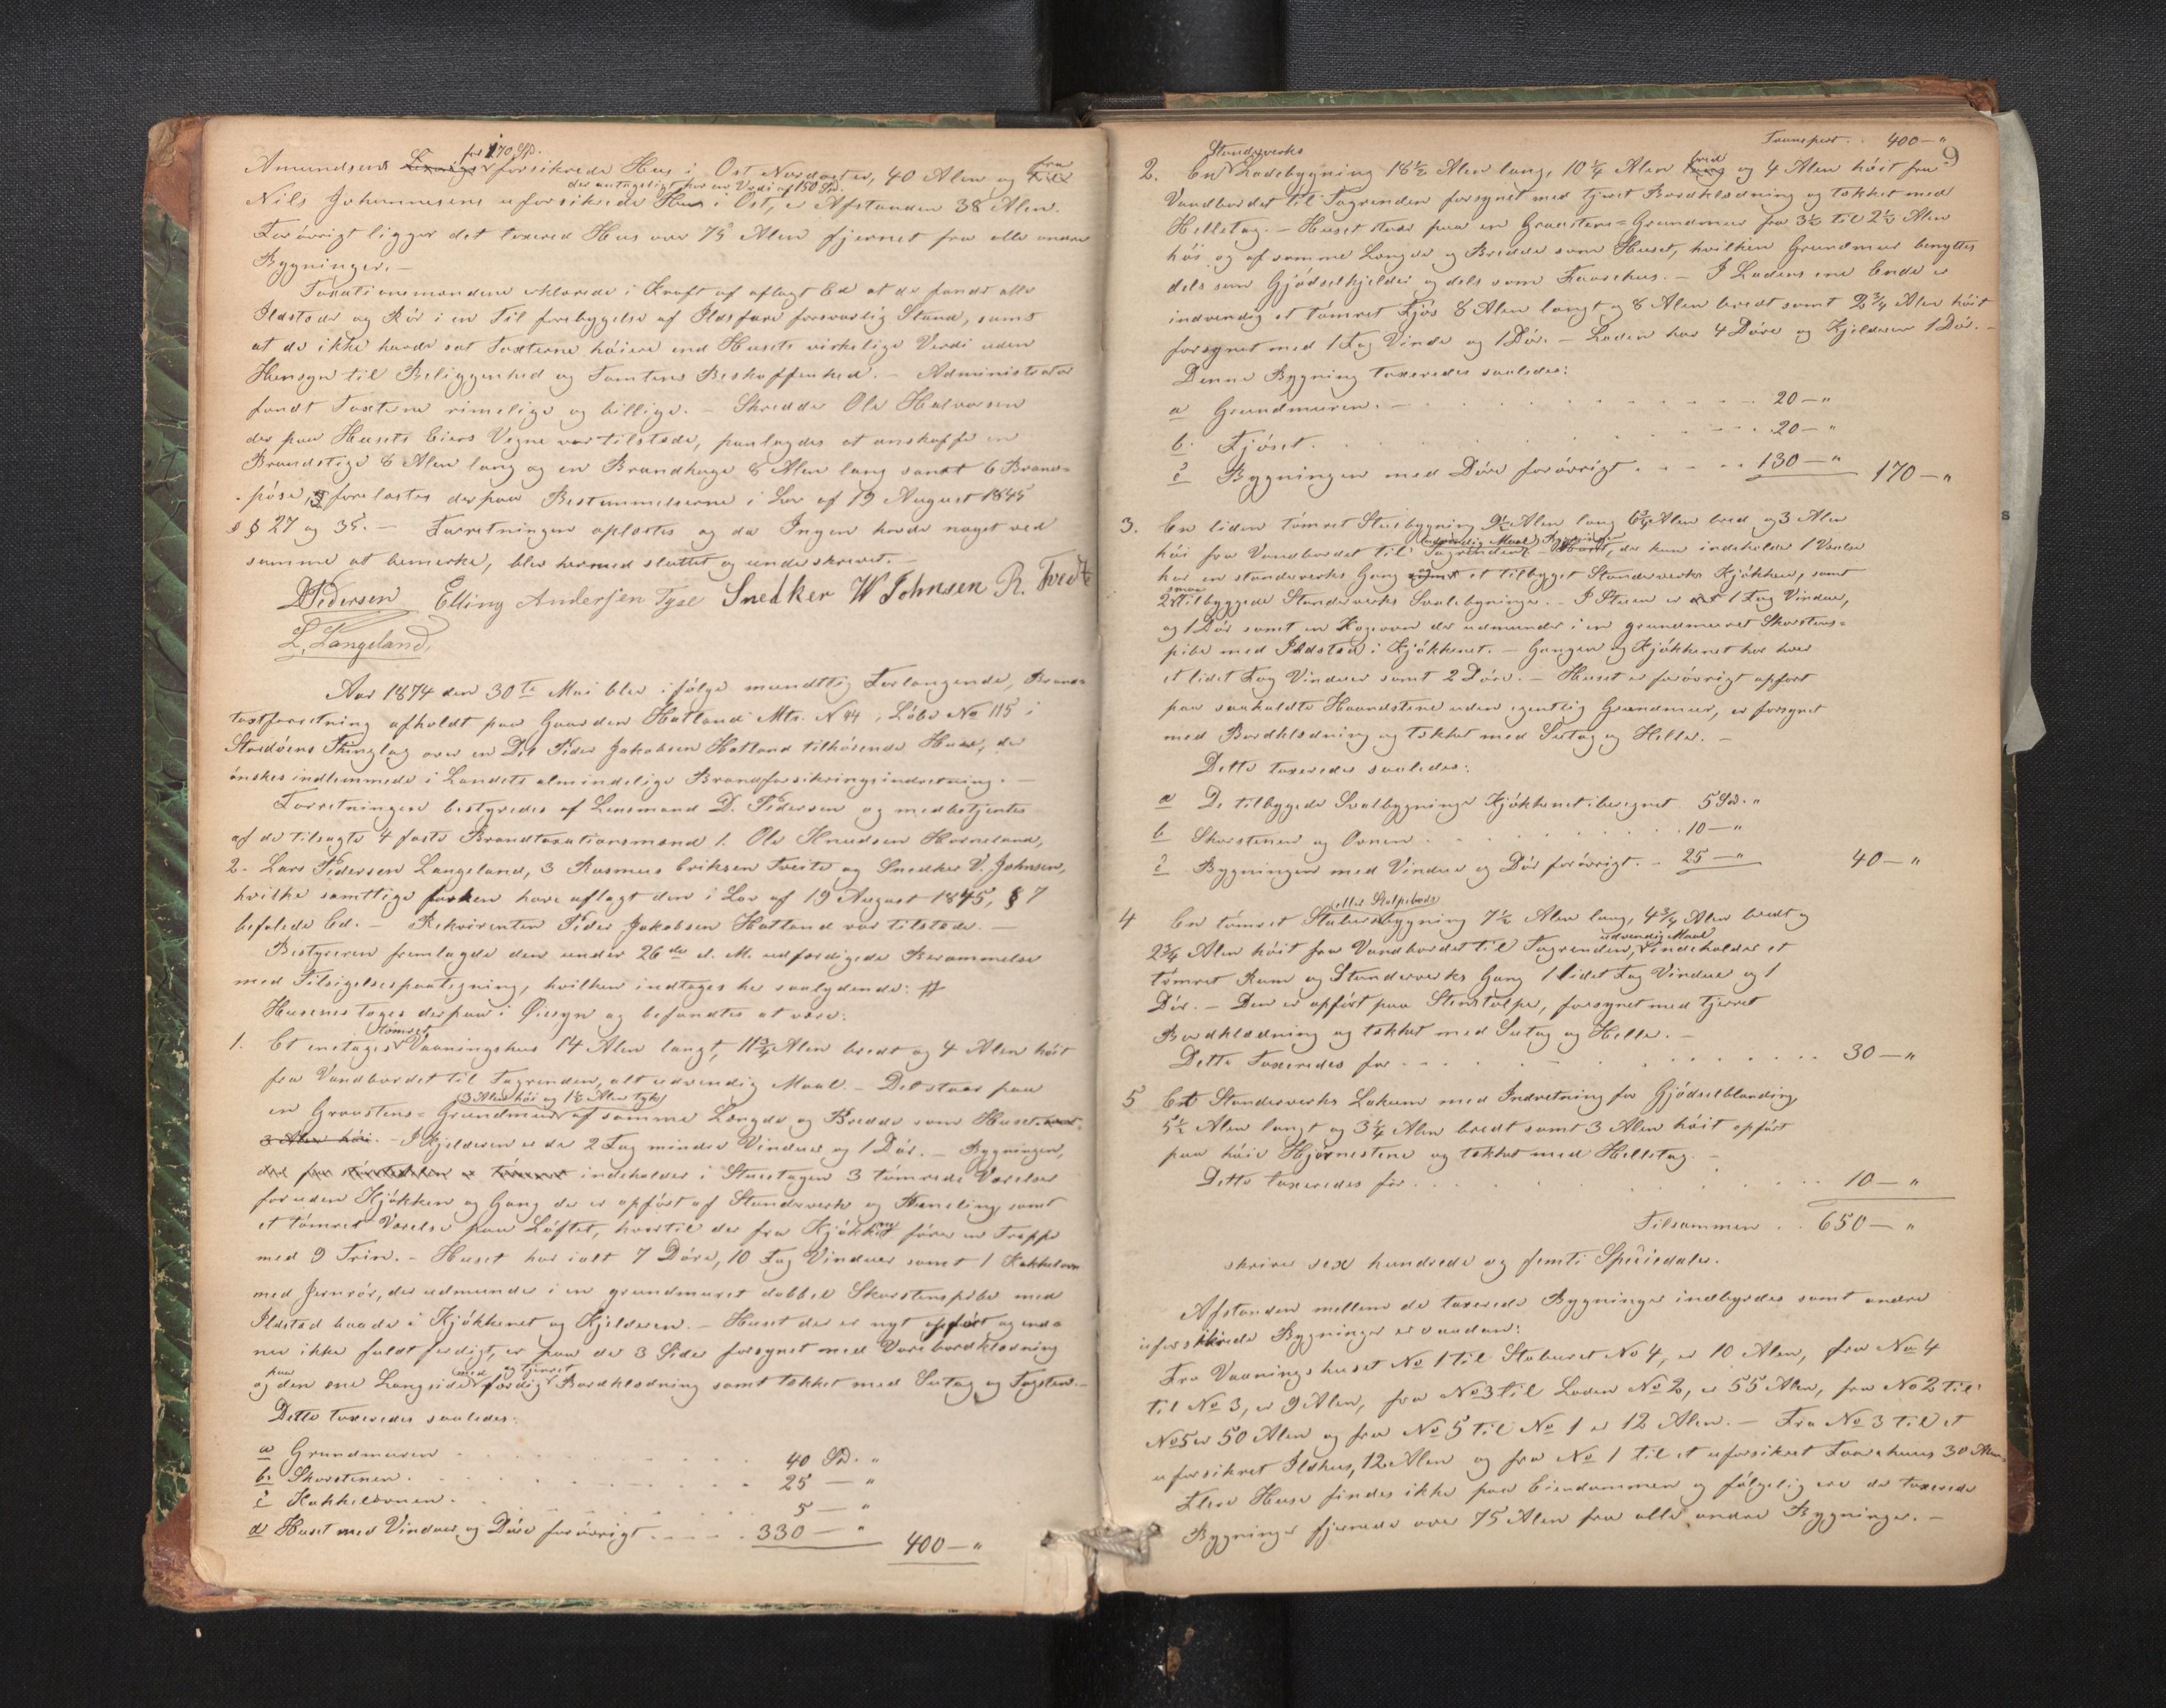 for 170 Spd.
Amundsens forsikrede Hus i Ost Nordost er, 40 Alen og fra
der antageligt har en Verdi af 150 Spd.
Nils Johannesens uforsikrede Hus i Ost, er Afstanden 38 Alen.
Forøvrigt ligger det taxerede Hus over 75 Alen fjernet fra alle andre
Bygninger. –
Taxationsmændene erklærede i Kraft af aflagt Ed at de fandt alle
Ildsteder og Rør i en til forebyggelse af Ildsfare forsvarlig Stand, samt
at de ikke havde sat Taxterne høiere end Husets virkelige Verdi uden
Hensyn til Beliggenhed og Tomtens Beskaffenhed. – Administrator
fandt Taxterne rimelige og billige. – Skrædder Ole Halvorsen
der paa Husets Eiers Vegne var tilstede, paalagdes at anskaffe en
Brandstige 8 Alen lang og en Brandhage 8 Alen lang samt 6 Brand-
pøse, forelæstes derpaa Bestemmelserne i Lov af 19 August 1845
§ § 27 og 35. – Forretningen oplæstes og da Ingen havde noget ved
samme at bemærke, blev hermed sluttet og underskrevet. –
D Pedersen Elling Andersen Tyse Snedker W Johnsen R. Tvedte
L. Langeland,
Aar 1874 den 30te Mai blev ifølge mundtlig Forlangende, Brand-
taxtforretning afholdt paa Gaarden Hatland Mts. N 44, Løbe No 115 i
Størdøens Thinglag over en Del Peder Jakobsen Hatland tilhørende Huse, der
ønskes indlemmede i Landets almindelige Brandforsikringsindretning. –
Forretningen bestyredes af Lensmand D. Pedersen og medbetjentes
af de tilsagte 4 faste Brandtaxationsmænd 1. Ole Knudsen Horneland,
2. Lars Pedersen Langeland, 3 Rasmus Eriksen Tveite og Snedker V. Johnsen,
hvilke samtlige forhen have aflagt den i Lov af 19 August 1845, § 7
befalede Ed. – Rekvirenten Peder Jakobsen Hatland var tilstede. –
Bestyreren fremlagde den under 26de d. M. udfærdigede Berammelse
med Tilsigelsespaategning, hvilken indtages her saalydende: #
Husene toges derpaa i Øiesyn og befandtes at være:
tømret
1. Et enetages Vaaningshus 14 Alen langt, 11¾ Alen bredt og 4 Alen høit
fra Vandbordet til Tagrenden, alt udvendig Maal. – Det staar paa
(3 Alen høi og 1½ Alen tyk)
en Graastens-Grundmur af samme Længde og Bredde som Huset
3 Alen høi. – I Kjelderen er der 2 Fag mindre Vinduer og 1 Dør. – Bygningen,
indeholder i Stueetagen 3 tømrede Værelser
foruden Kjøkken og Gang der er opført af Standerverk og Paneling samt
et tømret Værelse paa Løftet, hvortil der fra Kjøkkenet fører en Trappe
med 9 Trin. – Huset har ialt 7 Døre, 10 Fag Vinduer samt 1 Kakkelovn
med Jernrør, der udmunder i en grundmuret dobbel Skorstenspibe med
Ildsted baade i Kjøkkenet og Kjelderen. – Huset der er nyt opført og end-
nu ikke fuldt ferdigt, er paa de 3 Sider forsynet med Vare bordklædning
paa med og tjærret
og den ene Langside færdigt Bordklædning samt tækket med Sutag og Tagsten. –
Dette taxeredes saaledes:
a Grundmuren 40 Spd. "
b. Skorstenen. 25 – "
c Kakkelovnen. 5 – "
d Huset med Vinduer og Døre forøvrigt 330 – " 400 – "
Transport. . 400 – "
9
Standerverks
2. En Ladebygning 18½ Alen lang, 10¼ Alen bred og 4 Alen høit fra
Vandbordet til Tagrenden forsynet med tjæret Bordklædning og tækket med
Helletag. – Huset staar paa en Graastens-Grundmur fra 3½ til 2½ Alen
høi og af samme Længde og Bredde som Huset, hvilken Grundmur benyttes
dels som Gjødselkjelder og dels som Faarehus. – I Ladens ene Ende er
indvendig et tømret Fjøs 8 Alen langt og 8 Alen bredt samt 2¾ Alen høit
forsynet med 1 Fag Vindu og 1 Dør. – Laden har 4 Døre og Kjelderen 1 Dør. –
Denne Bygning taxeredes saaledes:
a Grundmuren. – 20 – "
b. Fjøset. 20 – "
c Bygningen med Døre forøvrigt. 130 – " 170 – "
3. En liden tømret Stuebygning 9½ Alen lang 6¾ Alen bred og 3 Alen
udvendig Maal, Bygningen
høi fra Vandbordet til Tagrenden, der kun indeholder 1 Værelse
har en standerverks Gang og et tilbygget Standerverks Kjøkken, samt
smaa
2 tilbyggede Standerverks Svalebygninger. – I Stuen er 1 Fag Vinduer,
og 1 Dør samt en Kogeovn der udmunder i en grundmuret Skorstens-
pibe med Ildsted i Kjøkkenet. – Gangen og Kjøkkenet har hver
et lidet Fag Vinduer samt 2 Døre. – Huset er forøvrigt opført
paa saakaldte Haandstene uden egentlig Grundmur, er forsynet
med Bordklædning og tækket med Sutag og Heller. –
Dette taxeredes saaledes:
a De tilbyggede Svalbygninger Kjøkkenet iberegnet 5 Spd. "
b Skorstenen og Ovnen 10 – "
c Bygningen med Vinduer og Dør forøvrigt. – 25 – " 40 – "
eller Stolpebod
4 En tømret Stabursbygning 7½ Alen lang, 4¾ Alen bredt og
udvendig Maal
2¾ Alen høit fra Vandbordet til Tagrenden, indeholder et
tømret Rum og Standerverks Gang 1 lidet Fag Vindue og 1
Dør. – Den er opført paa Stenstolper, forsynet med tjerret
Bordklædning og tækket med Sutag og Heller. –
Dette Taxeredes for 30 – "
5 Et Standerverks Lokum med Indretning for Gjødselblanding
5½ Alen langt og 3¼ Alen bredt samt 3 Alen høit opført
paa høie Hjørnestene og tækket med Helletag. –
Dette taxeredes for 10 – "
Tilsammen . . 650 – "
skriver sex hundrede og femti Speciedaler.
Afstanden mellem de taxerede Bygninger indbyrdes samt andre
uforsikrede Bygninger er saadan:
Fra Vaaningshuset No 1 til Staburet No 4, er 10 Alen, fra No 4
til No 3, er 9 Alen, fra No 3 til Laden No 2, er 55 Alen, fra No 2 til
No 5 er 50 Alen og fra No 5 til No 1 er 12 Alen. – Fra No 3 til et
uforsikret Ildhus, 12 Alen og fra No 1 til et uforsikret Faarehuus 30 Alen.
Flere Huse findes ikke paa Eiendommen og følgelig ere de taxerede
Bygninger fjernede over 75 Alen fra alle andre Bygninger. –